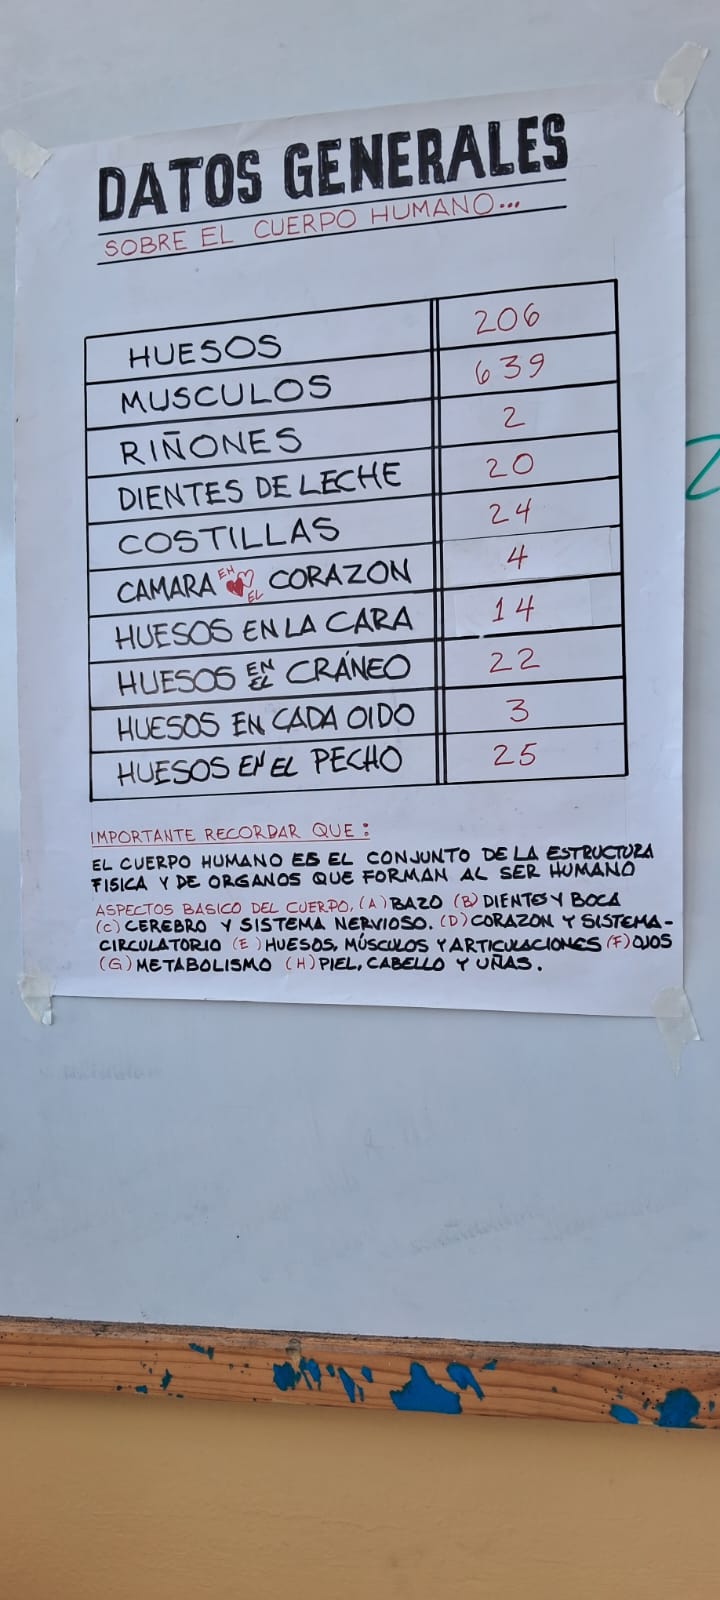 DATOS GENERALES
SOBRE EL CUERPO HUMANO...
HUESOS 206
MUSCULOS 639
RIÑONES 2
DIENTES DE LECHE 20
COSTILLAS 24
CAMARA EN EL CORAZON 4
HUESOS EN LA CARA 14
HUESOS EN EL CRÁNEO 22
HUESOS EN CADA OIDO 3
HUESOS EN EL PECHO 25
IMPORTANTE RECORDAR QUE:
EL CUERPO HUMANO ES EL CONJUNTO DE LA ESTRUCTURA
FISICA Y DE ORGANOS QUE FORMAN AL SER HUMANO
ASPECTOS BASICO DEL CUERPO, (A) BAZO (B) DIENTES Y BOCA
(C) CEREBRO Y SISTEMA NERVIOSO. (D) CORAZON Y SISTEMA-
CIRCULATORIO (E) HUESOS, MÚSCULOS Y ARTICULACIONES (F) OJOS
(G) METABOLISMO (H) PIEL, CABELLO Y UÑAS.